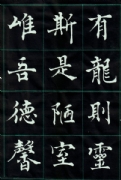 有龍則靈
斯是陋室
唯吾德馨